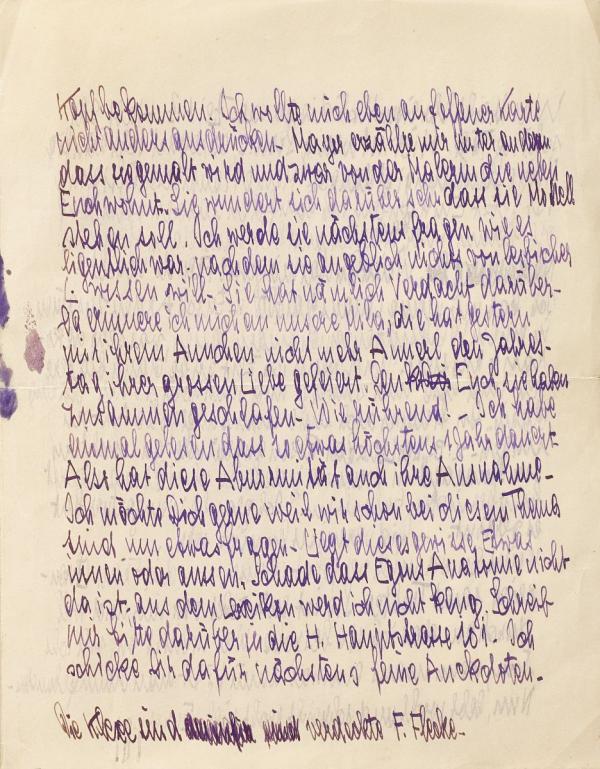 Kopf bekommen. Ich wollte mich eben auf offener Karte
nicht anders ausdrücken. Mayer erzählte mir unter anderm
dass sie gemalt wird und zwar von der Malerin die neben
Euch wohnt. Sie wundert sich darüber sehr dass sie Modell
stehen soll. Ich werde sie nächstens fragen wie es
eigentlich war. nachdem sie angeblich nichts von
L. wissen will. Sie hat nämlich Verdacht darüber-
Da erinnere ich mich an unsere die hat gestern
mit ihrem Ännchen nicht mehr Annerl den Jahres-
tag ihrer grossen Liebe gefeiert. Euch sie haben
zusammen geschlafen- Wie rührend! - Ich habe
einmal gelesen dass so etwas höchstens 1 Jahr dauert-
Also hat diese Abnormität auch ihre Ausnahme-
Ich möchte Dich gerne weil wir schon bei diesem Thema
sind um etwas fragen- Liegt dieses gewisse Etwas
innen oder aussen. Schade dass Egons Anatomie nicht
da ist. aus dem Lexikon werd ich nicht klug. Schreib
mir bitte darüber in die H. Hauptstrasse 101. Ich
schicke Dir dafür nächstens feine Anekdoten.
Die Kleckse sind verdeckte F. Flecke-